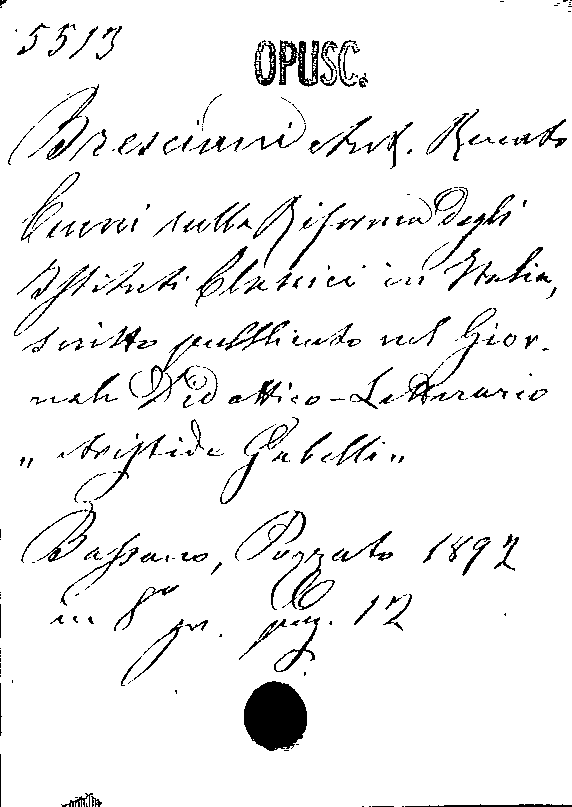 5513
OPUSC.
Bresciani Ant. Renato
Cenni sulla Riforma degli
Istituti Classici in Italia,
scritto pubblicato nel Gior-
nale Didattico-Letterario
„ Aristide Gabelli „
Bassano, Pozzato 1892
in 8° gr. pag. 12